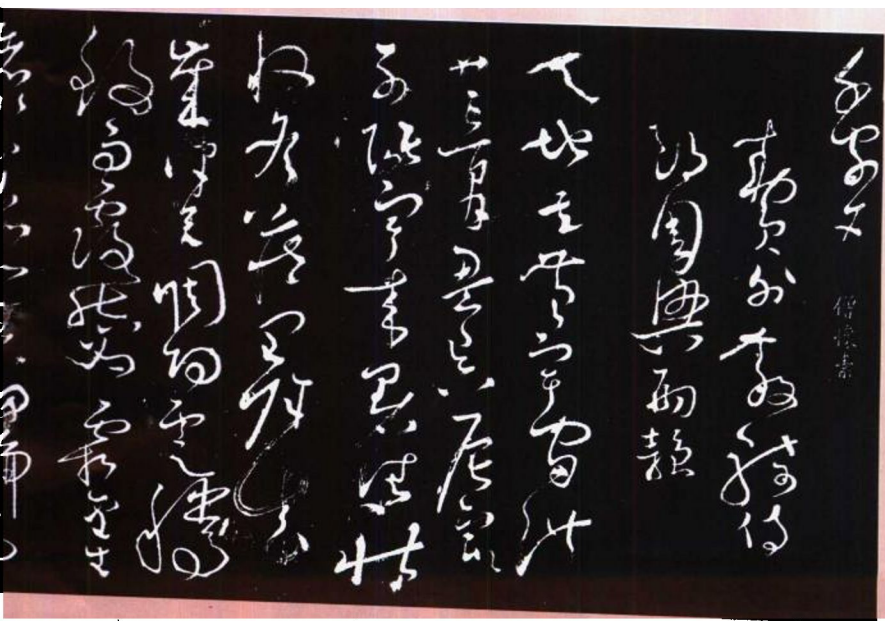 千字文 僧懷素
敕員外散騎侍
郎周興嗣韻
天地玄黃宇宙洪
荒日月盈昃辰宿
列張寒來暑往秋
收冬藏閏餘成
歲律呂調陽雲騰
致雨露結為霜金生